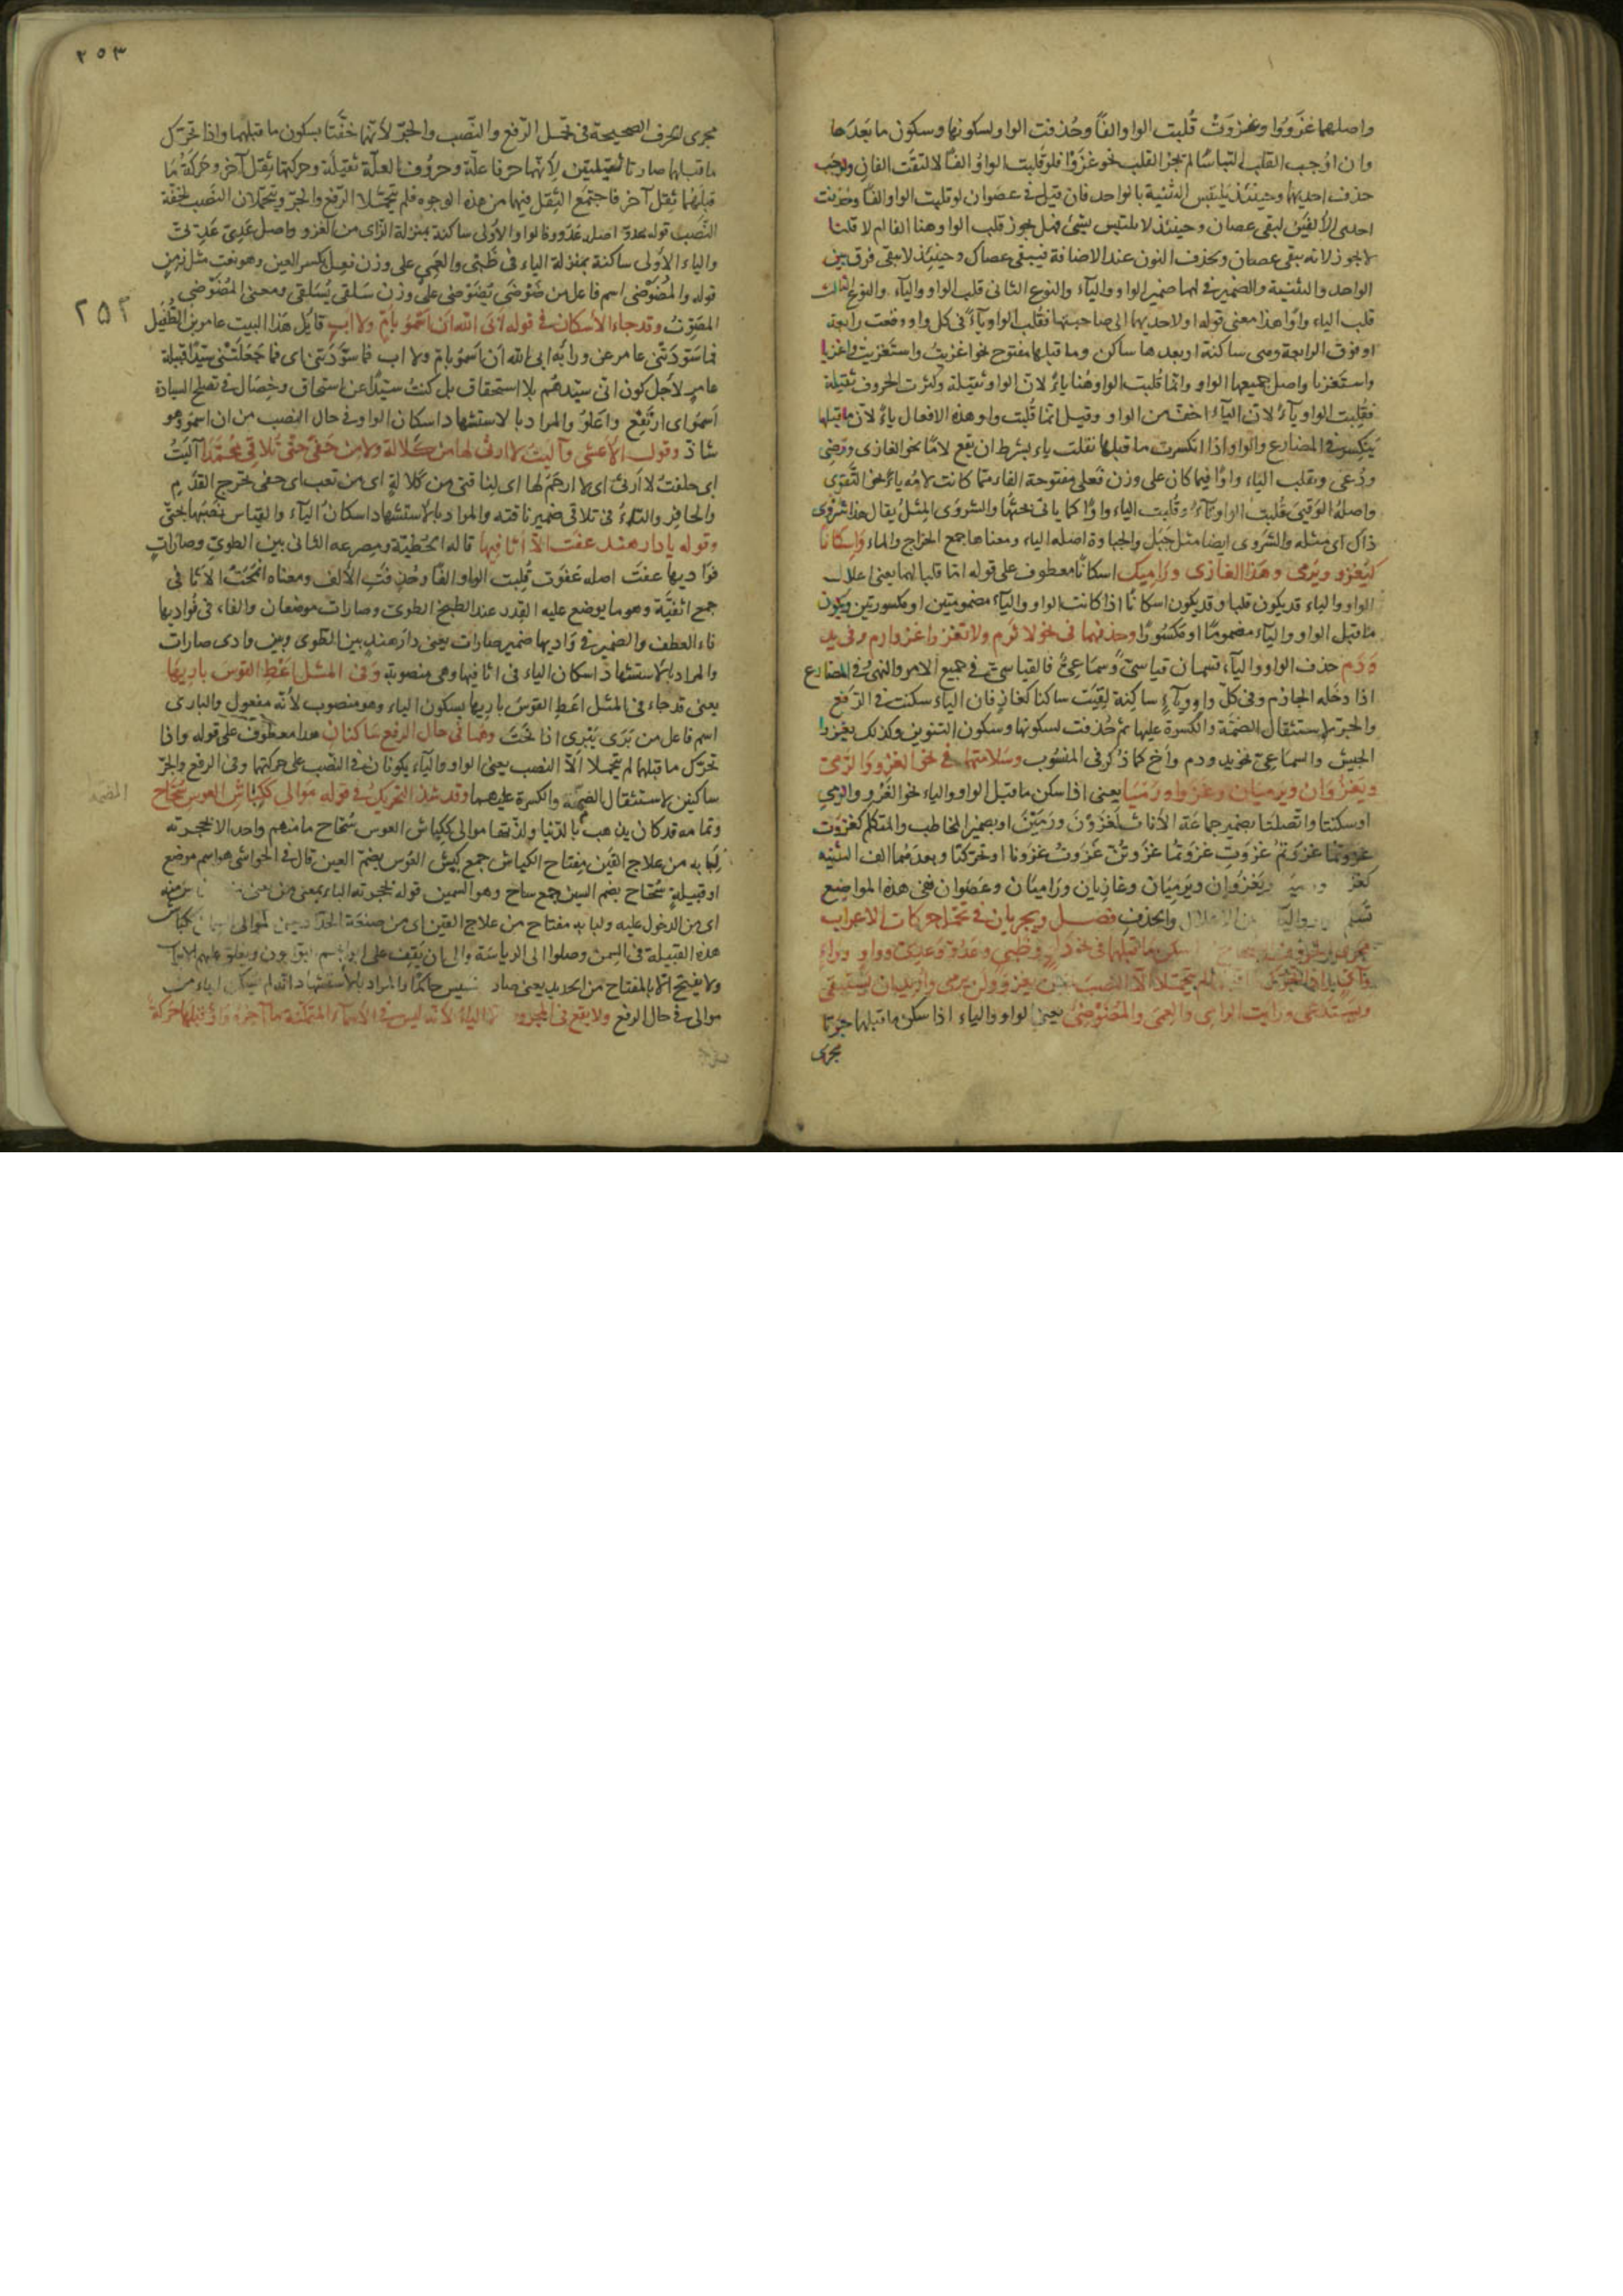 واصلهما غَزَوُوا وغَزَوَتْ قُلبت الواو الفًا وحُذفت الواو لسكونها وسكون ما بَعدَها
وان اوُجب القلب التباسًا لم يجز القلب نحو غَزَوَا فلو قلبت الواوُ الفًا لالتقت الفان ولوجَب
حذف احديهما وحينئذ يلتبس التثنية بالواحد فان قيل في عصَوان لو قلبت الواو الفًا وحُذفت
احدى الألفَين لبقى عصان وحينئذ لا يلتبس بشئ فهل يجوز قلب الواو هنا الفا ام لا قلنا
لا يجوز لانه يبقى عصان ويحذف النون عند الاضافة فيبقى عصاك وحينئذ لا يبقى فرق بين
الواحد والتثنية والضمير في لهما ضمير الواو والياء والنوع الثانى قلب الواو والياء والنوع الثالث
قلب الياء واوًا هذا معنى قوله او لاحديهما الى صاحبتها فتقلب الواو ياءً في كل واو وقعت رابعة
او فوق الرابعة وهى ساكنة او بعدها ساكن وما قبلها مفتوح نحو اغزيتُ واستغزيت واغزيا
واستغزيا واصل جميعها الواو وانّما قُلبت الواو هُنا ياءً لانّ الواو ثقيلة وكثرت الحروف ثقيلة
فقلبت الواو ياءً لانّ الياء اخفّ من الواو وقيل انما قُلبت واو هذه الافعال ياءً لانّ ما قبلها
ينكسر في المضارع والواو اذا انكسرت ما قبلها تقلب ياء بشرط ان تقع لامًا نحو الغازى ورَضِى
ودُعى وتقلب الياء واوًا فيما كان على وزن فَعلى مفتوحة الفاء ممّا كانت لامُه ياءً نحو التَّقوى
واصلهُ الوَقيىَ قُلبت الواو تاءً وقُلبت الياء واوًا كما يأتى بحثُها والشروَى المِثلُ يقال هذا شَروى
ذاك اى مثله والشَروى ايضا مثل جَبَل والجباوة اصله الياء ومعناها جمع الخراج والماء وَاِسكانًا
كيَغزو ويَرمى وهَذا الغازى ورَامِيك اسكانًا معطوف على قوله امّا قلبا لهما يعنى اعلال
الواو والياء قد يكون قلبا وقد يكون اسكانًا اذا كانت الواو والياء مضمومتين او مكسورتين ويكون
ما قبل الواو والياء مضمومًا او مَكسُورًا وحذفهما في نحو لا تَرم ولا تغز واغز وارم وفى يد
وَدَم حذف الواو والياء قسمان قياسىّ وسماعىّ فالقياسىّ في جميع الامر والنهى وفي المضارع
اذا دخله الجازم وفى كلّ واو وياء ساكنة لقِيَت ساكنا كغازٍ فان الياء سكنت في الرَفع
والجرّ لاستثقال الضمّة والكسرة عليها ثم حُذفت لسكونها وسكون التنوين وكذلك يغزوا
الجيش والسماعىّ نحو يد ودم وأخ كما ذكر في المنسُوب وسَلامتهما في نحو الغزو والرَمى
ويَغزُوَان ويَرميَان وغَزَوا ورَمَيَا يعنى اذا سكن ما قبل الواو والياء نحو الغَزْو والرمى
او سكنتا واتّصلتا بضمير جماعَة الأناث كغَزَوْنَ ورَمَيْنَ او بضمير المخاطب والمتكلم كغزوتَ
غزوتُمَا غَزَوتُم غزوتِ غزوتُما غَزوتُنّ غَزوتُ غزونا او تحركتا وبعدهُما الف التثنيه
كغزَ ويَغزُوان ويَرميَان وغازيان ورَامِيان وعصَوان ففى هذه المواضِع
من الاعلال والحذف فصل ويجريان في تحمّل حركات الاعراب
سكن ما قبلهما في نحو دَلوٍ وظَبىٍ وعَدُوّ وعَدِىّ وواوٍ وزاىٍ
لم يتحمّلا الّا النصب نحو لن يغزوَ ولن يرمىَ واريد ان يستبقىَ
ويَستَدعىَ ورايت الرامىَ والعَمِىَ والمُضَوضِىَ يعنى الواو والياء اذا سكن ما قبلهما جَرَتا
مجرى
٢٥٣
مجرى الحرف الصحيحة في تحمّل الرّفع والنّصب والجرّ لأنّهما خفَّتا بسكون ما قبلهما واذا تحرّك
ما قبلهما صارتا ثقيلتين لأنّهما حرفا علّة وحروف العلّة ثقيلَة وحركتهما ثِقل آخر وحَركة مَا
قبلهُما ثقل آخر فاجتمع الثقل فيها من هذه الوجوه فلم يتحمّلا الرّفع والجرّ ويتحمّلان النّصب لخفّة
النَّصب قوله عدوّ اصله عَدوو فالواو الأُولى ساكنة بمنزلة الزّاى من الغزو واصل عَدِىّ عَدِيىٌ
والياء الأُولى ساكنة بمنزلة الياء في ظَبْى والعَمِى على وزن فعِل بكسر العين وهو نعت مثل زمِنٍ
قوله والمُضَوْضِى اسم فاعل من ضَوْضَى يُضَوضى على وزن سَلقى يُسَلقِى ومعنى المُضَوضِى
٢٥٣
المصَوِّتُ وقد جاء الأسكان في قوله اَبَى اللهُ اَن اَسْمُو بِاُمّ ولا اَبِ قايل هَذا البيت عامر بن الطُّفيل
فما سَوّدَتنى عامر عن وراثة ابى الله اَن اَسمُو بامّ ولا اب فما سَوَّدَتنى اى فما جَعَلَتنى سَيّدًا قبيلة
عامر لاجل كون ابى سيّدهُم بلا استحقاق بل كنتُ سيّدًا عن استحقاق وخِصَال في تصلح السيادة
اَسمُو اى ارتفِع واعلُو والمراد بالاستشهاد اسكان الواو في حال النصب من ان اسمُوَ وهو
شاذّ وقول الاعشى وآليتُ لا ارثى لهَا من كَلالة ولا من حَفىً حتّى تُلاقى مُحَمَّدا آليتُ
اى حلفت لا اَرثى اى لا ارحَمُ لها اى لناقتى من كلالة اى من تعب اى حفى بخرج القدم
والحافر والتاءُ في تلاقى ضمير ناقته والمراد بالاستشهاد اسكان الياء والقِياس نَصْبُها بحتّى
وقوله يا دار هند عفت الّا اَثافِيها قاله الحُطيئة ومصرعه الثانى بين الطوىّ وصاراتٍ
فوَاديها عفَت اصله عَفَوَت قُلبت الواو الفًا وحُذفت الألف ومعناه انمحَتْ الأثافى
جمع اثفيّة وهو ما يوضع عليه القِدر عند الطبخ الطوى وصارات موضعان والفاء في فواديها
فاء العطف والضمير في وَاديها ضمير صارات يعنى دار هند بين الطوى وبين وادى صارات
والمراد بالاستشهاد اسكان الياء في اثافيها وهى منصوبة وفى المثل اَعْطِ القوسَ بارِيهَا
يعنى قد جاء في المثل اَعطِ القوسَ باريها بسكون الياء وهو منصوب لأنه مفعول والبارى
اسم فاعل من بَرَى يَبْرِى اذا نَحَتَ وهُما في حال الرفع ساكنان هذا معطوف على قوله واذا
تحرّك ما قبلهما لم يتحمّلا الّا النصب يعنى الواو والياء يكونان في النّصب على حركتهما وفى الرفع والجرّ
ساكنين لاستثقال الضمّة والكسرة عليهما وقد شذ التحريك في قوله موالى ككباش العوس سُحّاح
وتمامه قد كان يذهب بالدّنيا ولذّتها موالى ككباش العوس سُحّاح ما منهم واحد الا بحجرته
لبَابه من علاج القَين مِفتاح الكباش جمع كبش العُوس بضمّ العين قال في الحواشى هو اسم موضع
او قبيلة سُحّاح بضم السين جمع ساح وهو السمين قوله بحجرته الباء بمعنى
اى من الدخول عليه ولبابه مفتاح من علاج القين اى من صنعَة الحدّاد
هذه القبيلة في السِمَن وصلوا الى الرياسَة
ولا يفتح الّا بالمفتاح من الحديد يعنى صاد والمراد بالأستشهاد انّه لم يسكن الياء من
موالى في حال الرفع ولا يقع في المجرور الياء لأنّه ليس في الأسمآء المتمكّنة ما آخره واو قبلها حركة